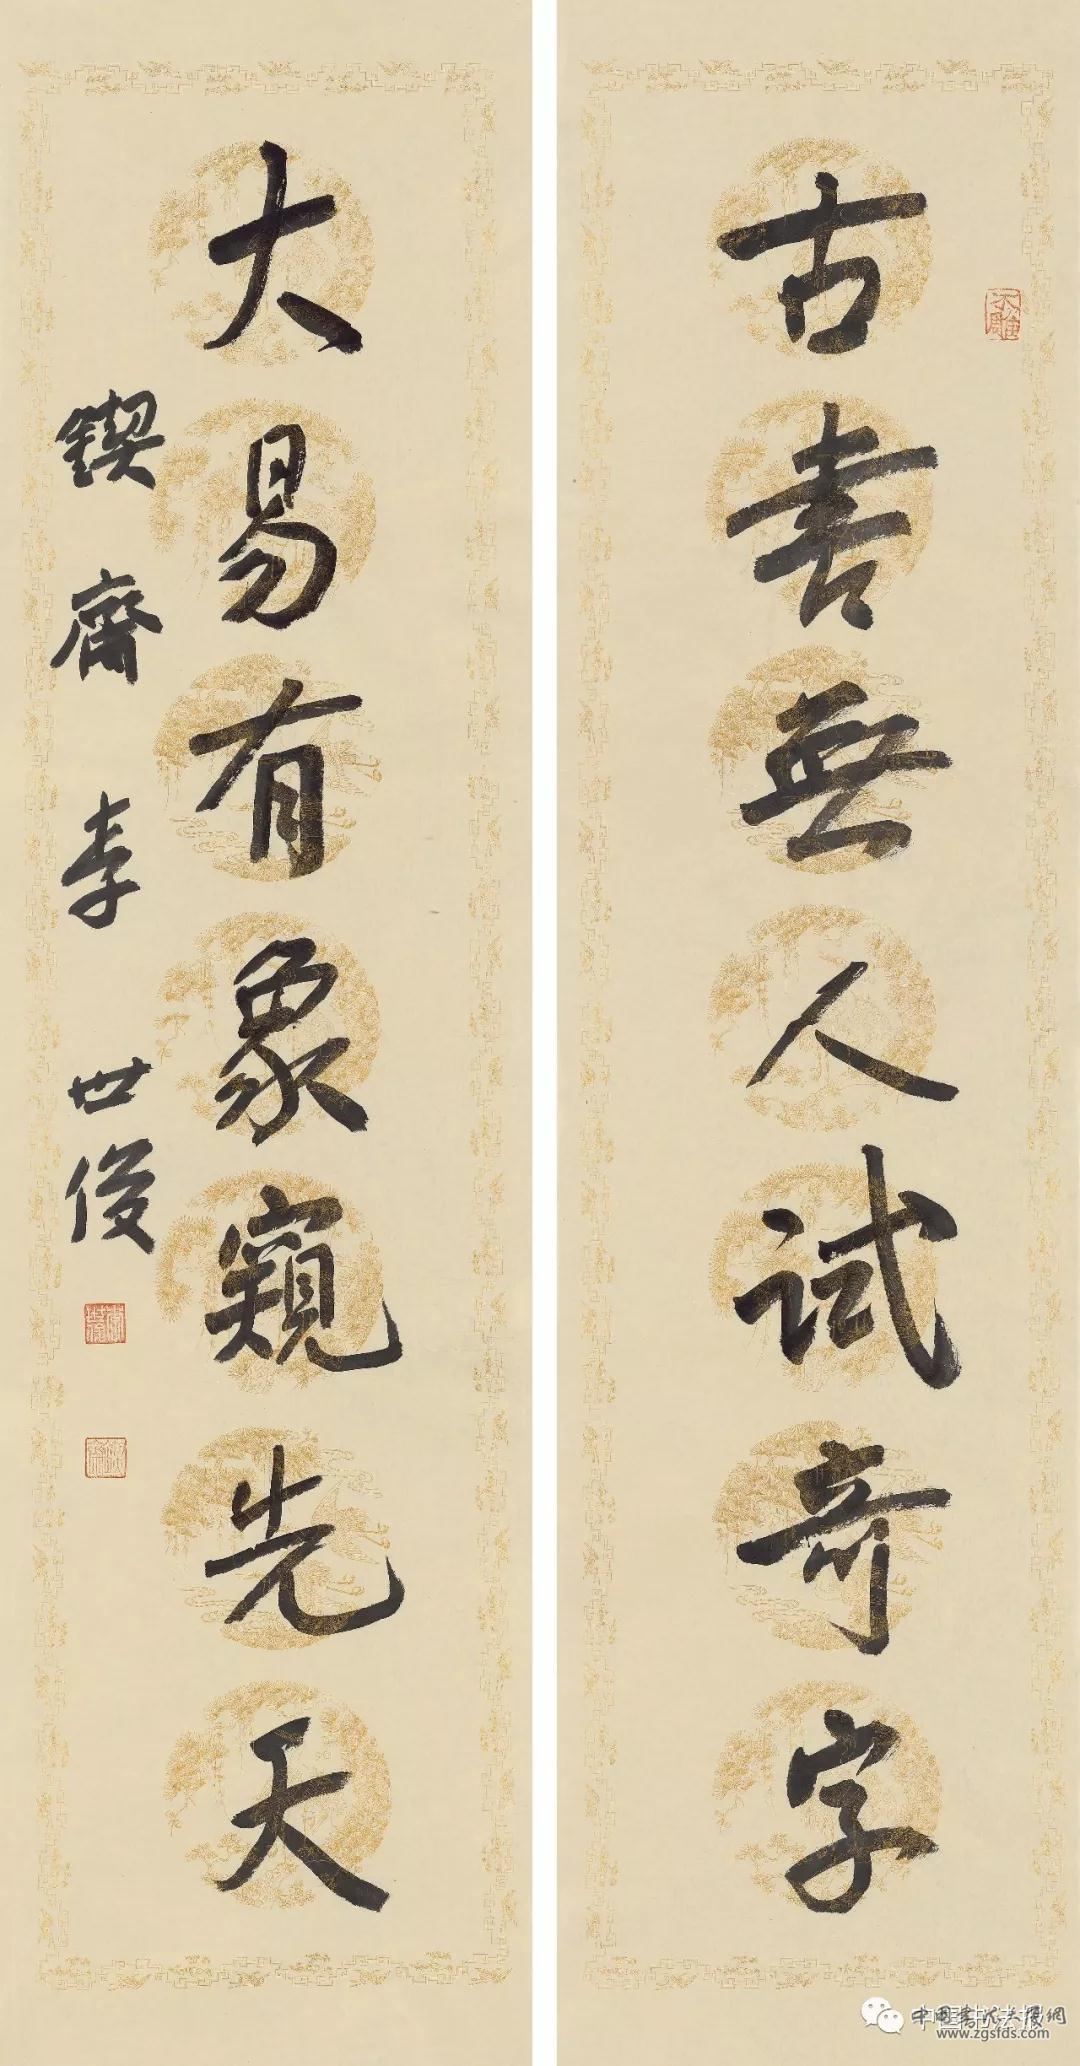 古書無人試奇字
大易有象窺先天
鍥齋李世俊
不雕
中国书法报
www.zgsfds.com